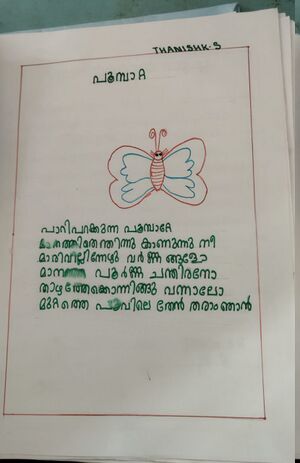 THANISHK.S
പൂമ്പാറ്റ
പാറിപറക്കുന്ന പൂമ്പാറ്റേ
കാണുന്നു നീ
മാരിവില്ലിന്നേഴു വർണ്ണങ്ങളോ
പൂർണ്ണ ചന്തിരനോ
താഴത്തേക്കൊന്നിങ്ങു വന്നാലോ
മുറ്റത്തെ പൂവിലെ തേൻ തരാം ഞാൻ